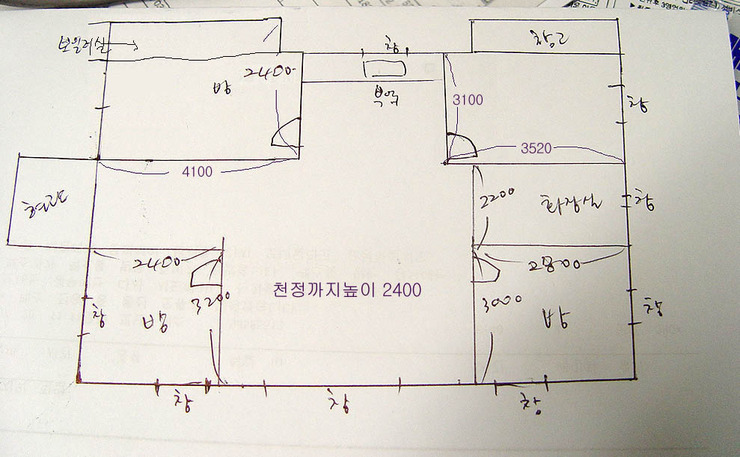 보일러실
창
창고
방
2400
부엌
3100
창
4100
3520
현관
2200
화장실
창
2400
2800
3200
천정까지높이 2400
3000
창
방
방
창
창
창
창